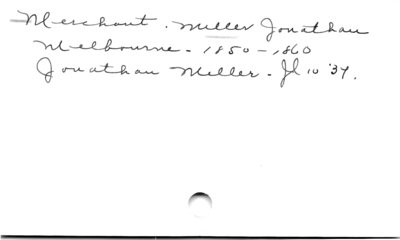 Merchant. Miller Jonathan
Melbourne - 1850 - 1860
Jonathan Miller - Jl 10 '37.